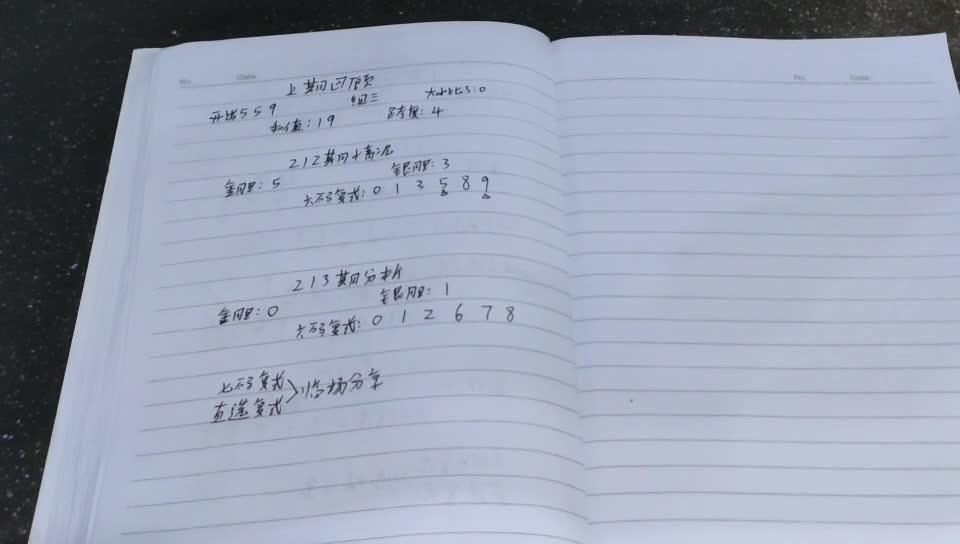 No.
Date
上期回顾
开出559 组三 大小比3:0
和值:19 跨度:4
212期中奖情况
金胆:5 银胆:3
六码复式:0 1 3 5 8 9
213期分析
金胆:0 银胆:1
六码复式:0 1 2 6 7 8
七码复式
直选复式
>临场分享
No.
Date